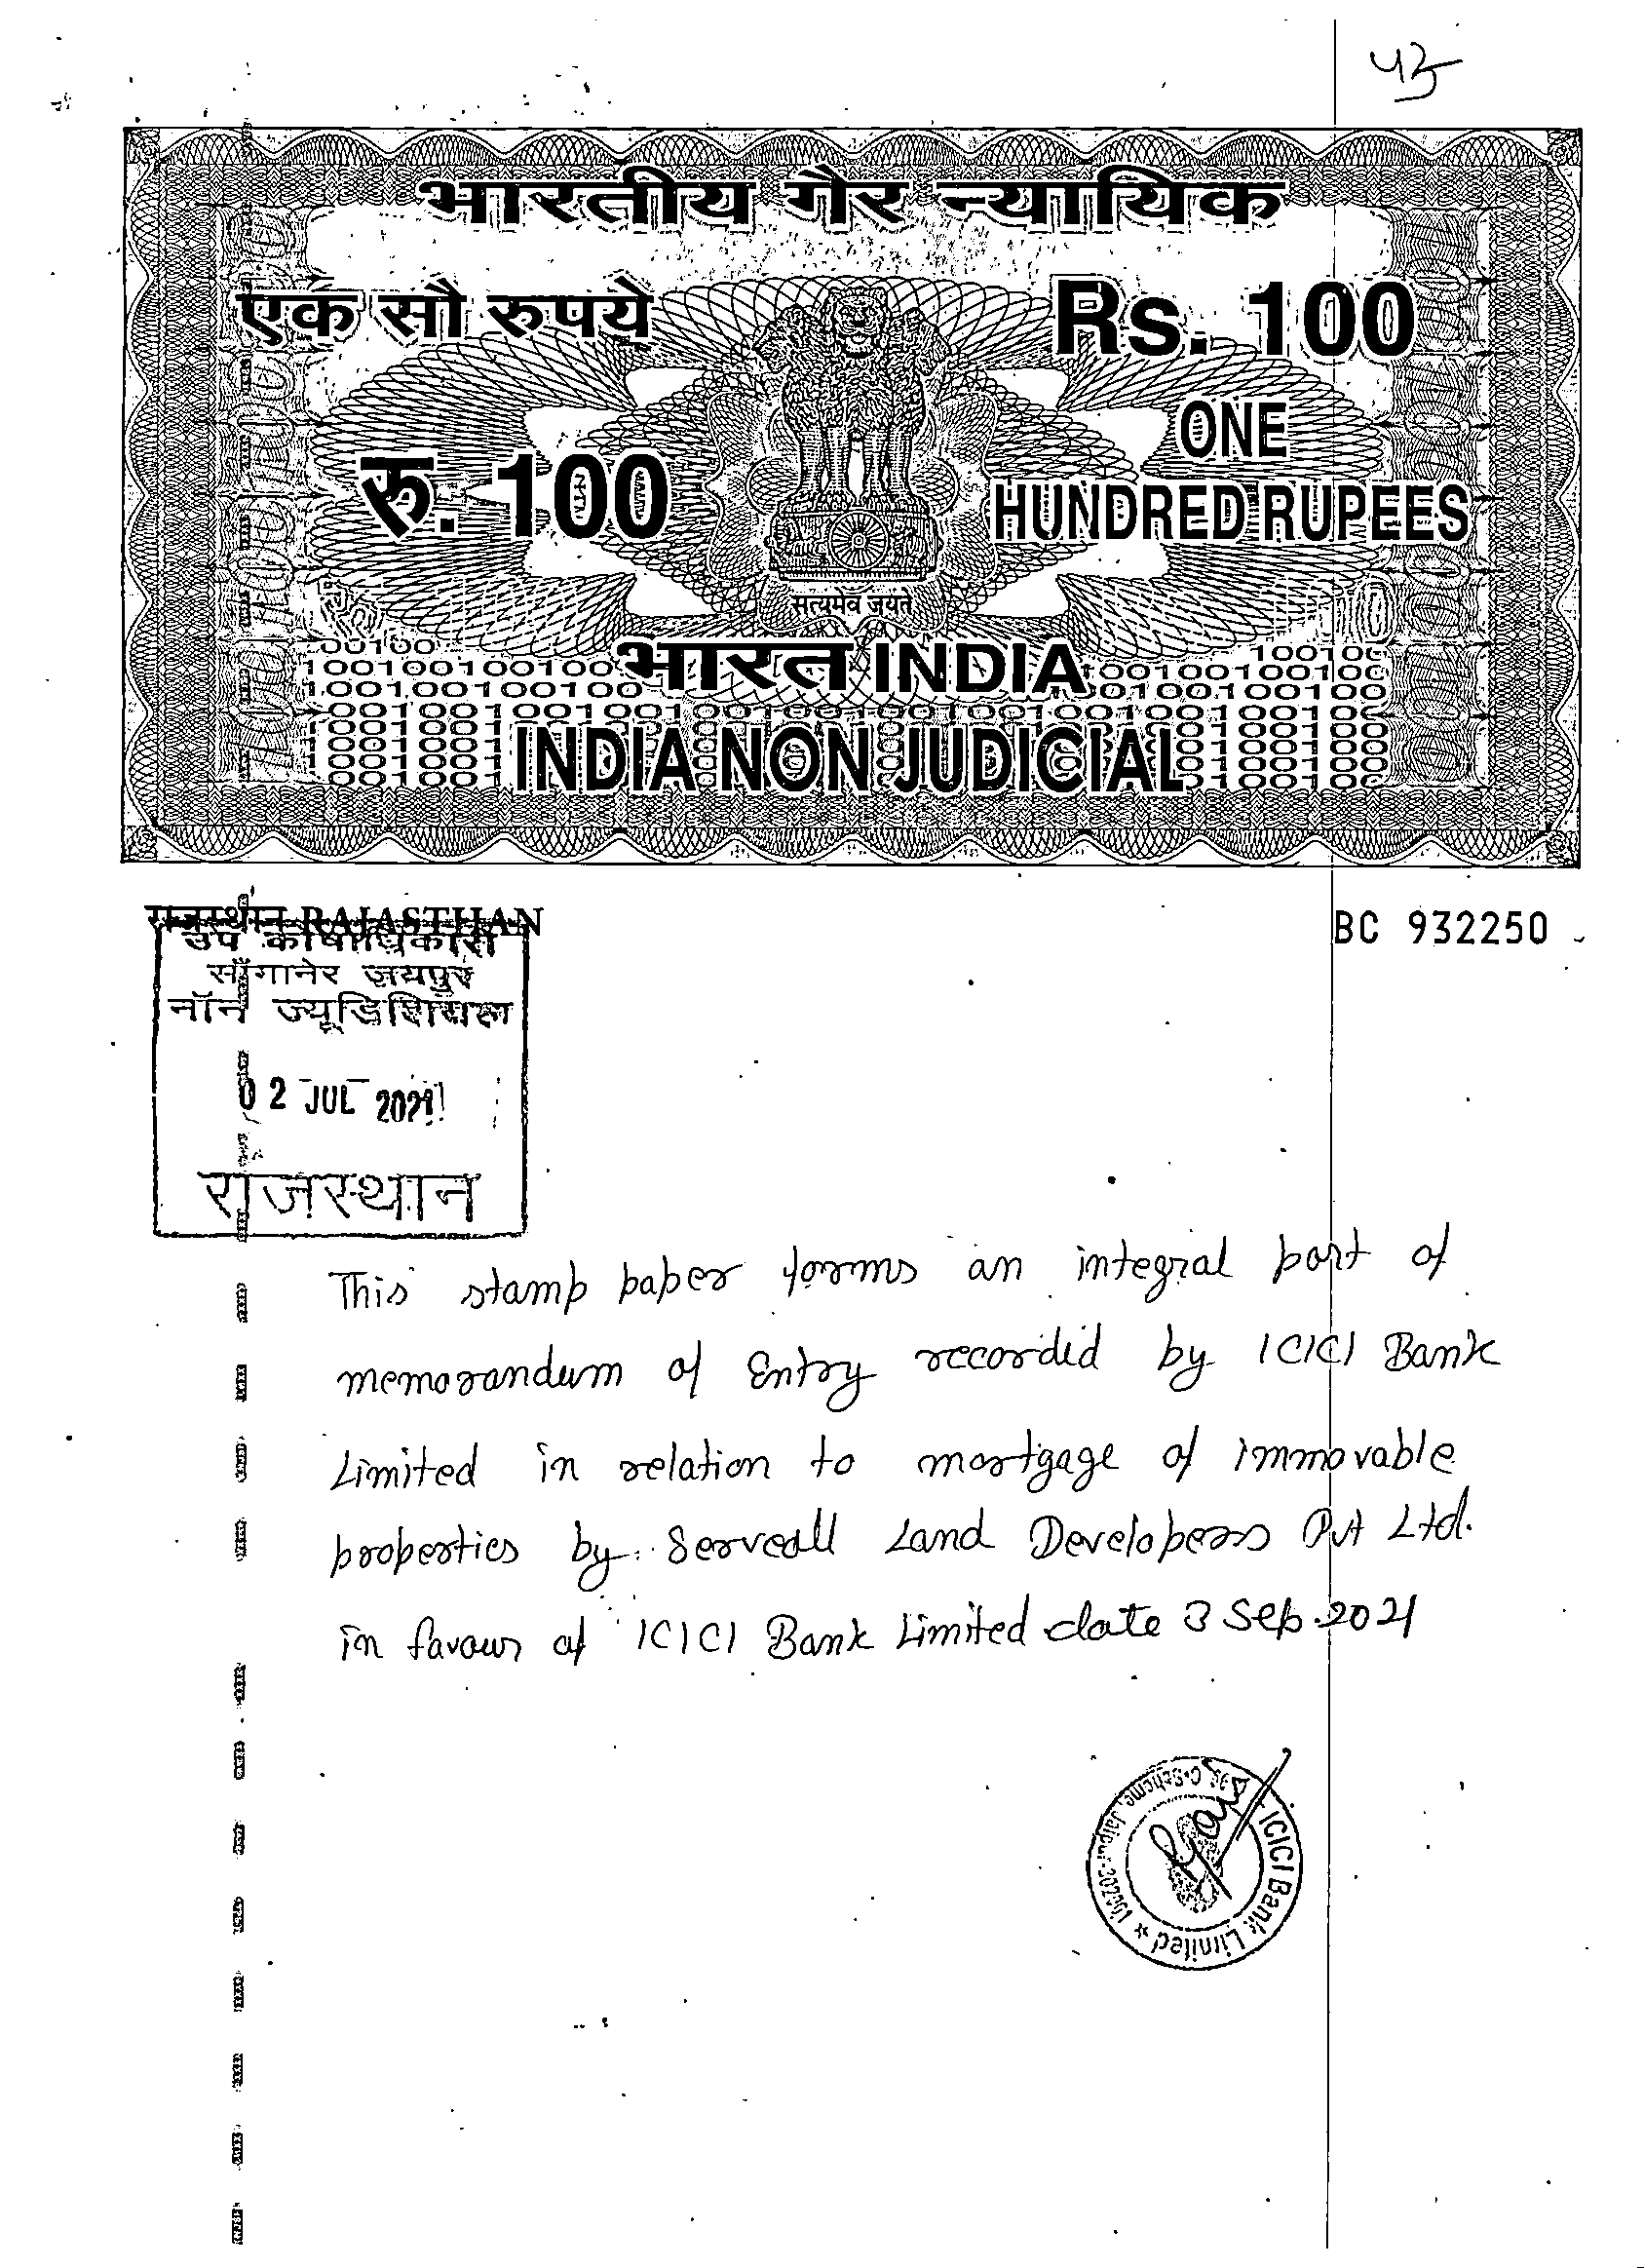 भारतीय गैर न्यायिक
एक सौ रुपये
Rs. 100
रु. 100
ONE
HUNDRED RUPEES
सत्यमेव जयते
भारत INDIA
INDIA NON JUDICIAL
राजस्थान RAJASTHAN
BC 932250
उप कोषाधिकारी
साँगानेर जयपुर
नॉन ज्यूडिशियल
02 JUL 2021
राजस्थान
This stamp paper forms an integral part of
memorandum of Entry recorded by ICICI Bank
Limited in relation to mortgage of immovable
properties by Serveall Land Developers Pvt Ltd.
in favour of ICICI Bank Limited date 3 Sep.2021
ICICI Bank Limited ★
C-Scheme, Jaipur-302001